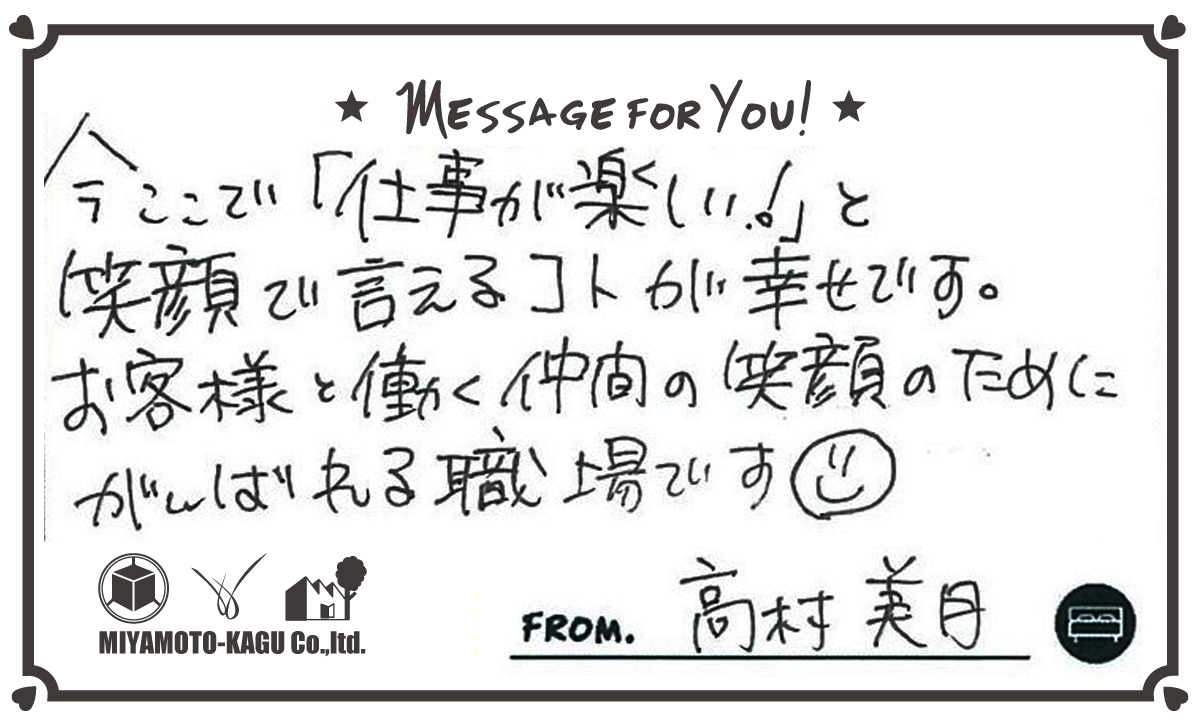 ★ MESSAGE FOR YOU! ★
今ここで「仕事が楽しい!」と
笑顔で言えるコトが幸せです。
お客様と働く仲間の笑顔のために
がんばれる職場です
MIYAMOTO-KAGU Co.,ltd.
FROM. 高村 美月